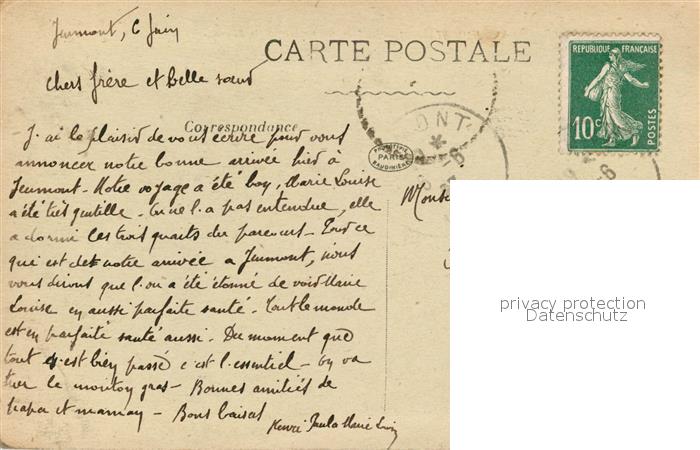 Jeumont, 6 Juin
CARTE POSTALE
REPUBLIQUE FRANÇAISE
10c
POSTES
chers frère et belle sœur
Correspondance
PARIS
J'ai le plaisir de vous écrire pour vous
annoncer notre bonne arrivée hier à
Jeumont - Notre voyage a été bon, Marie Louise
a été très gentille - on ne l'a pas entendue, elle
a dormi les trois quarts du parcours - Pour ce
qui est de notre arrivée à Jeumont, nous
vous dirons que l'on a été étonné de voir Marie
Louise en aussi parfaite santé. Tout le monde
est en parfaite santé aussi. Du moment que
tout s'est bien passé c'est l'essentiel - on va
tuer le mouton gras - Bonnes amitiés de
papa et maman - Bons baisers
Henri Paula Marie
privacy protection
Datenschutz